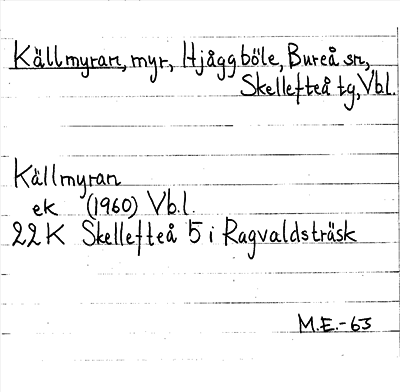 Källmyran, myr, Hjåggböle, Bureå sn,
Skellefteå tg, Vbl.
Källmyran
ek (1960) Vb.l.
22K Skellefteå 5 i Ragvaldsträsk
M.E.-63